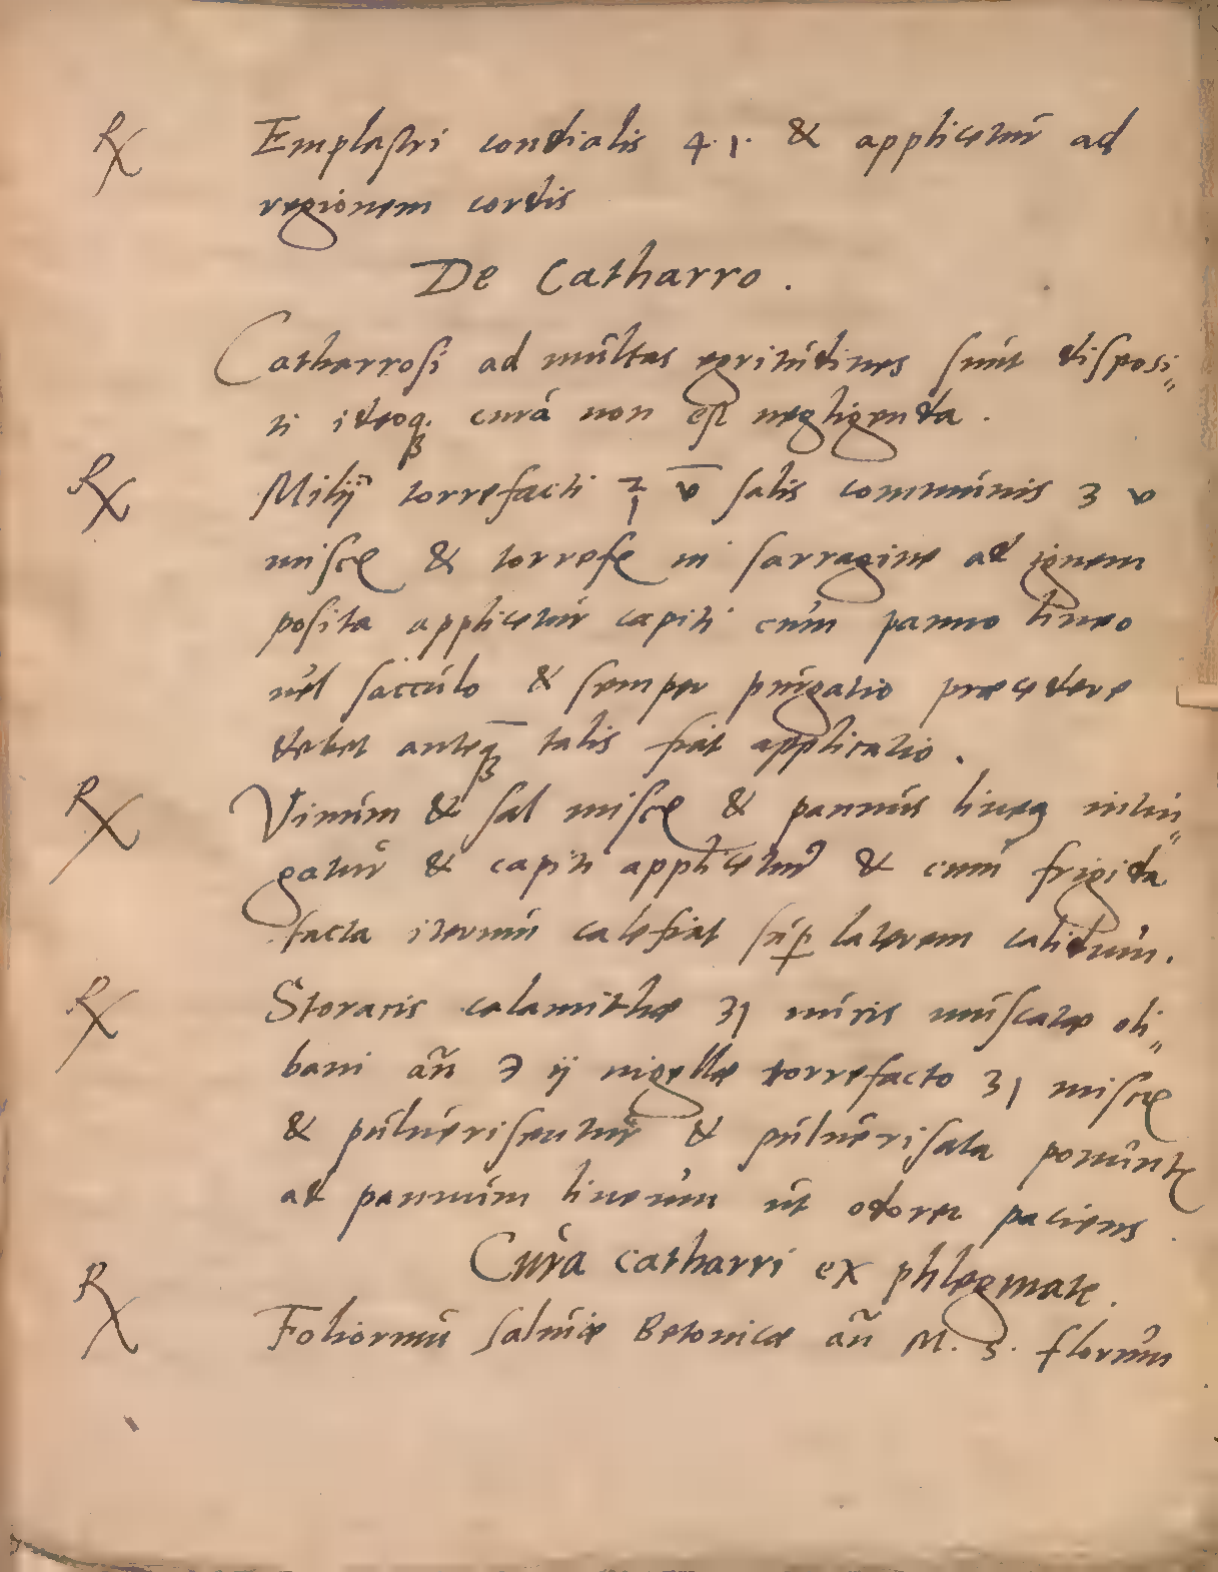 ℞ Emplastri cordialis 4. 1. & applicetur ad
regionem cordis
De Catharro.
Catharrosi ad multas egritudines sunt disposi„
ti ideoqꝫ cura non est negligenda.
℞ Milij torrefacti ℥ v salis communis ʒ v
misce & torrefe in sarragine ad ignem
posita applicetur capiti cum panno lineo
uel sacculo & semper purgatio præcedere
debet anteqꝫ talis fiat applicatio.
℞ Vinum & sal misce & pannus lineꝰ intin„
gatur & capiti applicetur & cum frigida
facta iterum calefiat sup̱ laterem calidum.
℞ Storacis calamithæ ʒ1 nucis muscatæ oli„
bani añ ℈ ij nigellæ torrefacto ʒ1 misce
& pulueriseutur & puluerisata ponunt
ad pannum lineum ut odoret paciens.
Cura catharri ex phlegmate.
℞ Foliorum saluiæ Betonicæ añ M. 3. florum